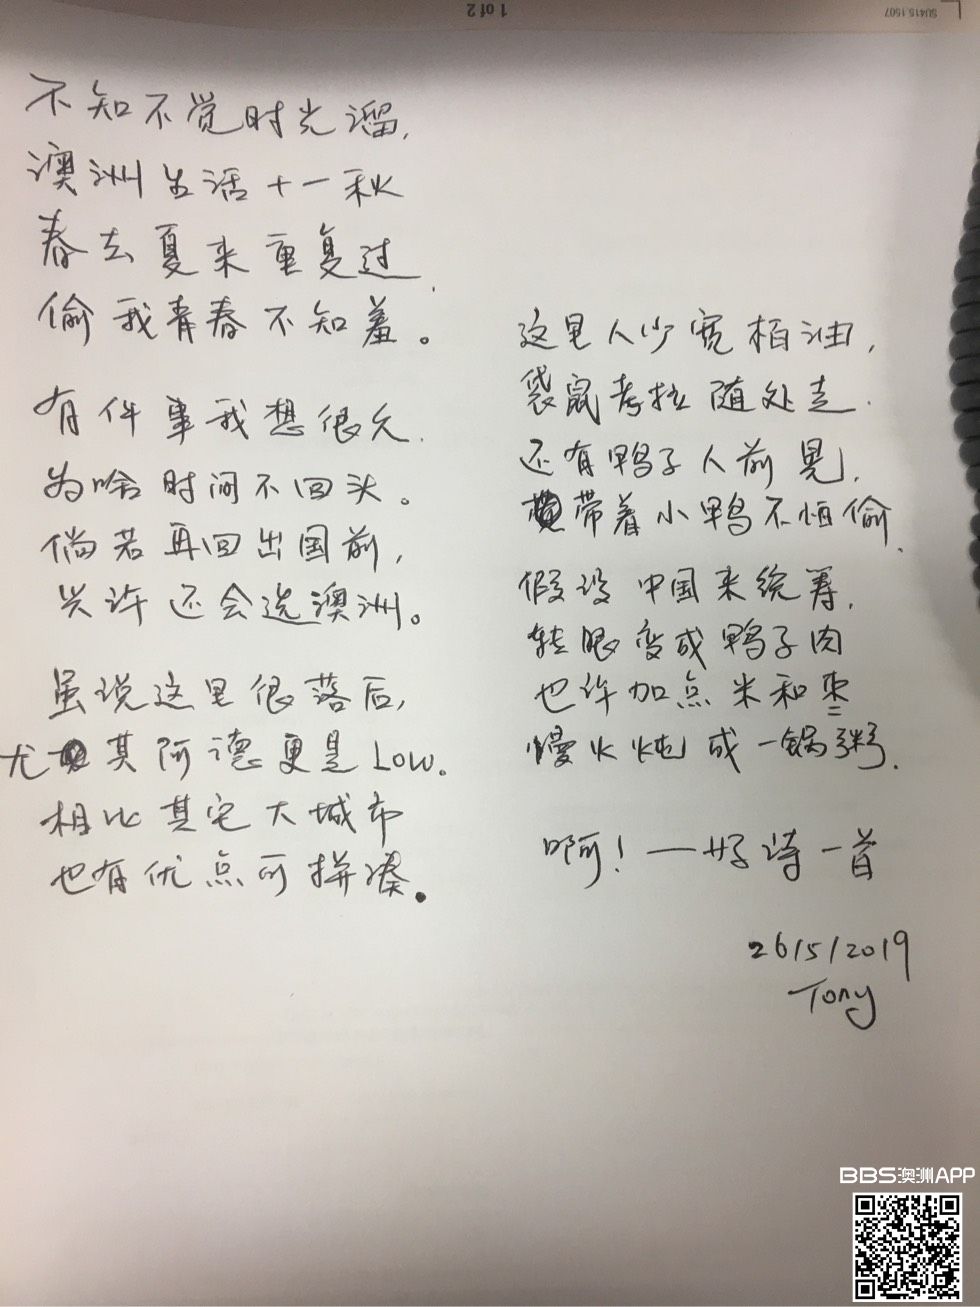 1 of 2
SU415.1507
不知不觉时光溜,
澳洲生活十一秋
春去夏来重复过,
偷我青春不知羞。
有件事我想很久,
为啥时间不回头。
倘若再回出国前,
兴许还会选澳洲。
虽说这里很落后,
尤其阿德更是Low。
相比其它大城市
也有优点可拼凑。
这里人少宽柏油,
袋鼠考拉随处走.
还有鸭子人前晃,
带着小鸭不怕偷.
假设中国来统筹,
转眼变成鸭子肉
也许加点米和枣
慢火炖成一锅粥.
啊!一好诗一首
26/5/2019
Tony
BBS澳洲APP